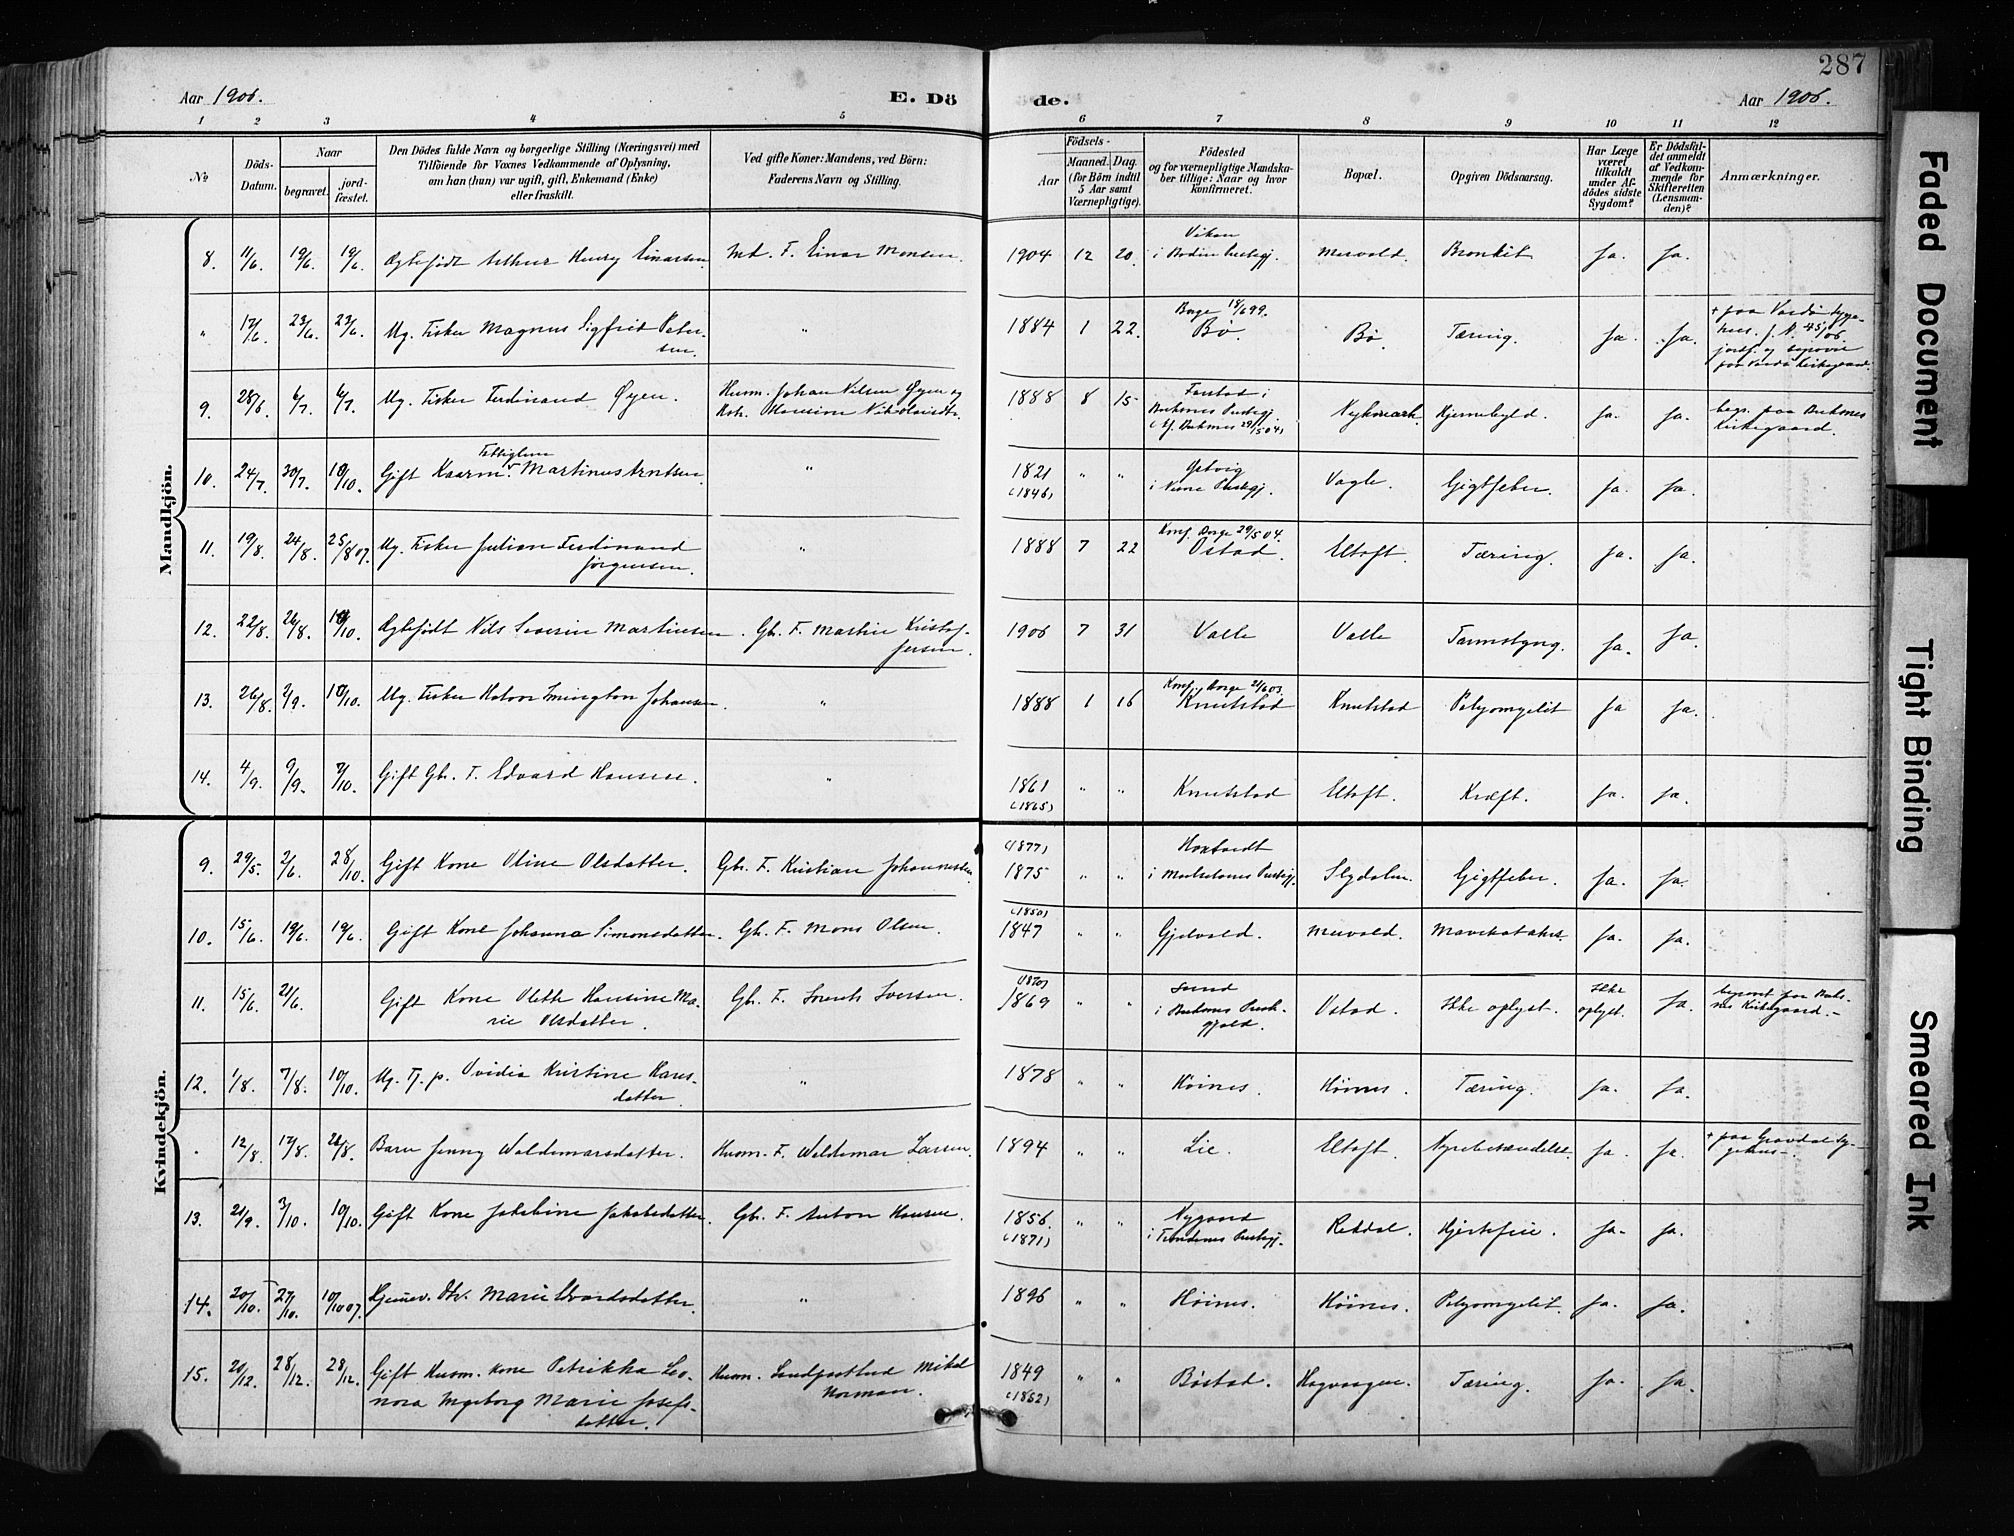 287
Aar 1906.
E. Dö
de.
Aar 1906.
1 2 3 4 5 6 7 8 9 10 11 12
No
Döds-Datum.
Naar
begravet.
jord-fæstet.
Den Dödes fulde Navn og borgerlige Stilling (Næringsvei) med
Tilföiende for Voxnes Vedkommende af Oplysning,
om han (hun) var ugift, gift, Enkemand (Enke)
eller fraskilt.
Ved gifte Koner: Mandens, ved Börn:
Faderens Navn og Stilling.
Födsels-
Aar
Maaned. Dag.
(for Börn indtil
5 Aar samt
Værnepligtige).
Födested
og for værnepligtige Mandska-
ber tillige: Naar og hvor
konfirmeret.
Bopæl.
Opgiven Dödsaarsag.
Har Læge
været
tilkaldt
under Af-
dödes sidste
Sygdom?
Er Dödsfal-
det anmeldt
af Vedkom-
mende for
Skifteretten
(Lensman-
den)?
Anmærkninger.
Mandkjön.
8. 11/6. 19/6. 19/6. Ægtefödt Arthur Henry Einarsen. Ind. F. Einar Monsen. 1904 12 20. i Bodin Prestegj. Mervold. Bronkit Ja. Ja.
" 17/6. 23/6. 23/6. Ug. Fisker Magnus Sigfrid Peter-
sen. " 1884 1 22. Borge 18/6 99.
Bø. Bø. Tæring. Ja. Ja. + paa Vardø Syge-
hus.
paa Vardø Kirkegaard.
9. 28/6. 6/7. 6/7. Ug. Fisker Ferdinand Øyen. Husm. Johan Nilsen Øyen og
1888 8 15 Farstad i
Buksnes Prestegj. Hjernebyld. Ja. Ja. begr. paa Buksnes
Kirkegaard.
10. 24/7. 30/7. 10/10. Gift Martinus Arntsen. " 1821
(1846) " " Prestegj. Vagle. Gigtfeber. Ja. Ja.
11. 19/8. 24/8. 25/8 07. Ug. Fisker Julian Ferdinand
Jørgensen. " 1888 7 22 Konf. Borge 29/5 04.
Ostad. Eltoft. Tæring. Ja. Ja.
12. 22/8. 26/8. 10/10. Ægtefödt Nils Severin Martinsen. Gb. F. Martin Kristof-
fersen. 1906 7 31 Valle Valle Ja. Ja.
13. 26/8. 2/9. 10/10. Ug. Fisker Johansen. " 1888 1 16 Konf. Borge 21/6 03.
Knutstad Knutstad Polyomyelit Ja Ja.
14. 4/9. 9/9. 7/10. Gift Gb. F. Edvard Hansen. " 1861
(1865) " " Knutstad Eltoft. Kræft. Ja. Ja.
Kvindekjön.
9. 29/5. 2/6. 28/10. Gift Kone Oline Olsdatter. Gbr. F. Kristian Johannessen. (1877)
1875 " " i Maalselvnes Prestegj. Slydalen. Gigtfeber. Ja. Ja.
10. 15/6. 19/6. 19/6. Gift Kone Johanna Simonsdatter. Gb. F. Mons Olsen. (1850)
1847 " " Gjelvold. Mervold. Mavekatahr. Ja. Ja.
11. 15/6. 21/6. Gift Kone Olette Hansine Ma-
rie Olsdatter. Gb. F. Iversen. (1870)
1869 " " Sund
i Buksnes Preste-
gjeld. Ustad. Ikke oplyst. Ikke
oplyst. Ja. begravet paa Buks-
nes Kirkegaard.-
12. 1/8. 7/8. 10/10. Ug. Tj. p. Ovidia Kristine Hans-
datter. " 1878 " " Höines. Höines. Tæring. Ja. Ja.
12/8. 17/8. 26/8. Barn Jenny Waldemarsdatter. Husm. F. Waldemar Larsen. 1894 " " Lie. Eltoft. Nyrebetændelse. Ja. Ja. + paa Gravdal Sy-
gehus.-
13. 21/9. 3/10. 10/10. Gift Kone Jakobine Jakobsdatter. Gb. F. Anton Hansen. 1856.
(1871) " " Nygaard
i Trondenes Prestegj. Rekdal. Hjertefeil. Ja. Ja.
14. 20/10. 27/10. 10/10 07. Hjemmev. Dtr. Marie Edvardsdatter. " 1896 " " Höines. Höines. Polyomyelit. Ja. Ja.
15. 20/12. 28/12. 28/12. Gift Husm. Kone Petrikka Leo-
nora Ingeborg Marie Josefs-
datter. Husm. Landpostbud Mikal
Norman. 1849
(1852) " " Böstad. Hagvaagen. Tæring. Ja. Ja.
Faded Document
Tight Binding
Smeared Ink